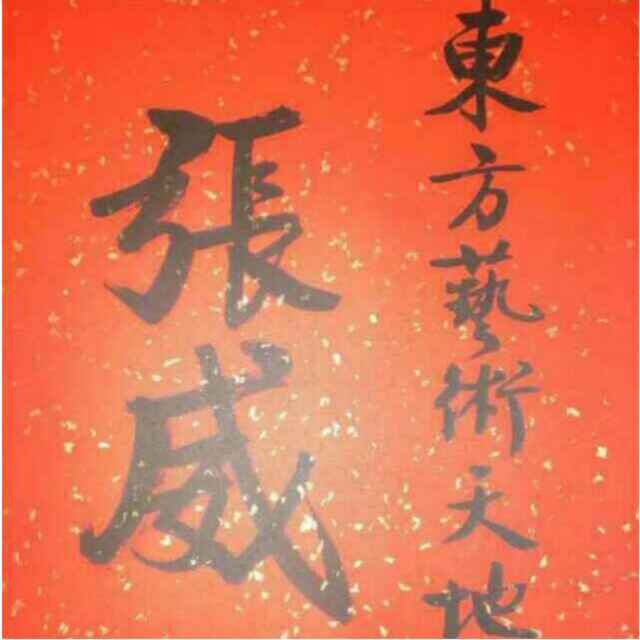 東方藝術天地
張威